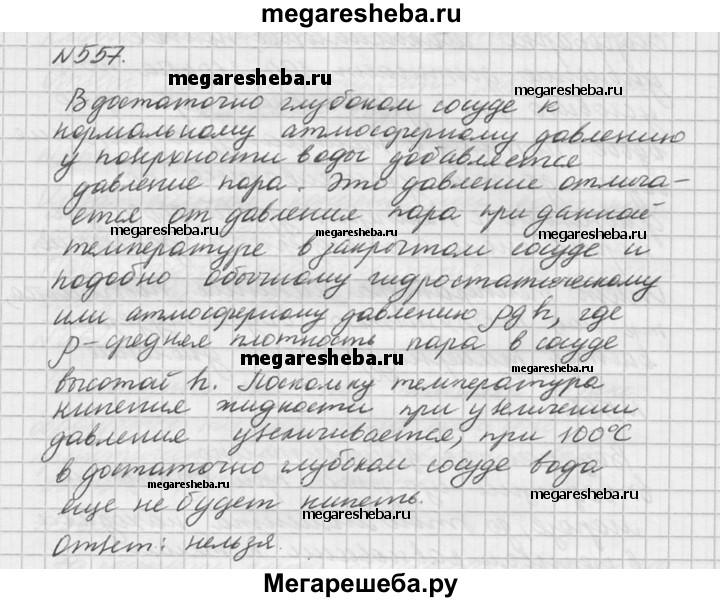 megaresheba.ru
№557.
megaresheba.ru
megaresheba.ru
В достаточно глубоком сосуде к
нормальному атмосферному давлению
у понрхности воды добавляется
давление пара. Это давление отлича-
ется от давления пара при данной
megaresheba.ru
megaresheba.ru
температуре в закрытом сосуде и
подобно обычному гидростатическому
или атмосферному давлению ρgh, где
ρ – средняя плотность пара в сосуде
megaresheba.ru
высотой h. Поскольку температура
кипения жидкости при увеличении
давления увеличивается, при 100°С
в достаточно глубоком сосуде вода
megaresheba.ru
megaresheba.ru
еще не будет кипеть.
megaresheba.ru
Ответ: нельзя.
Мегарешеба.ру